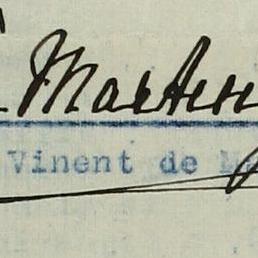 Marten
Vinent de